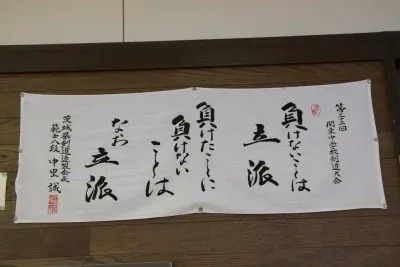 第三十三回
関東中学校剣道大会
負けないことは
立派
負けたことに
負けない
ことは
なお立派
茨城県剣道連盟会長
範士八段 中里誠